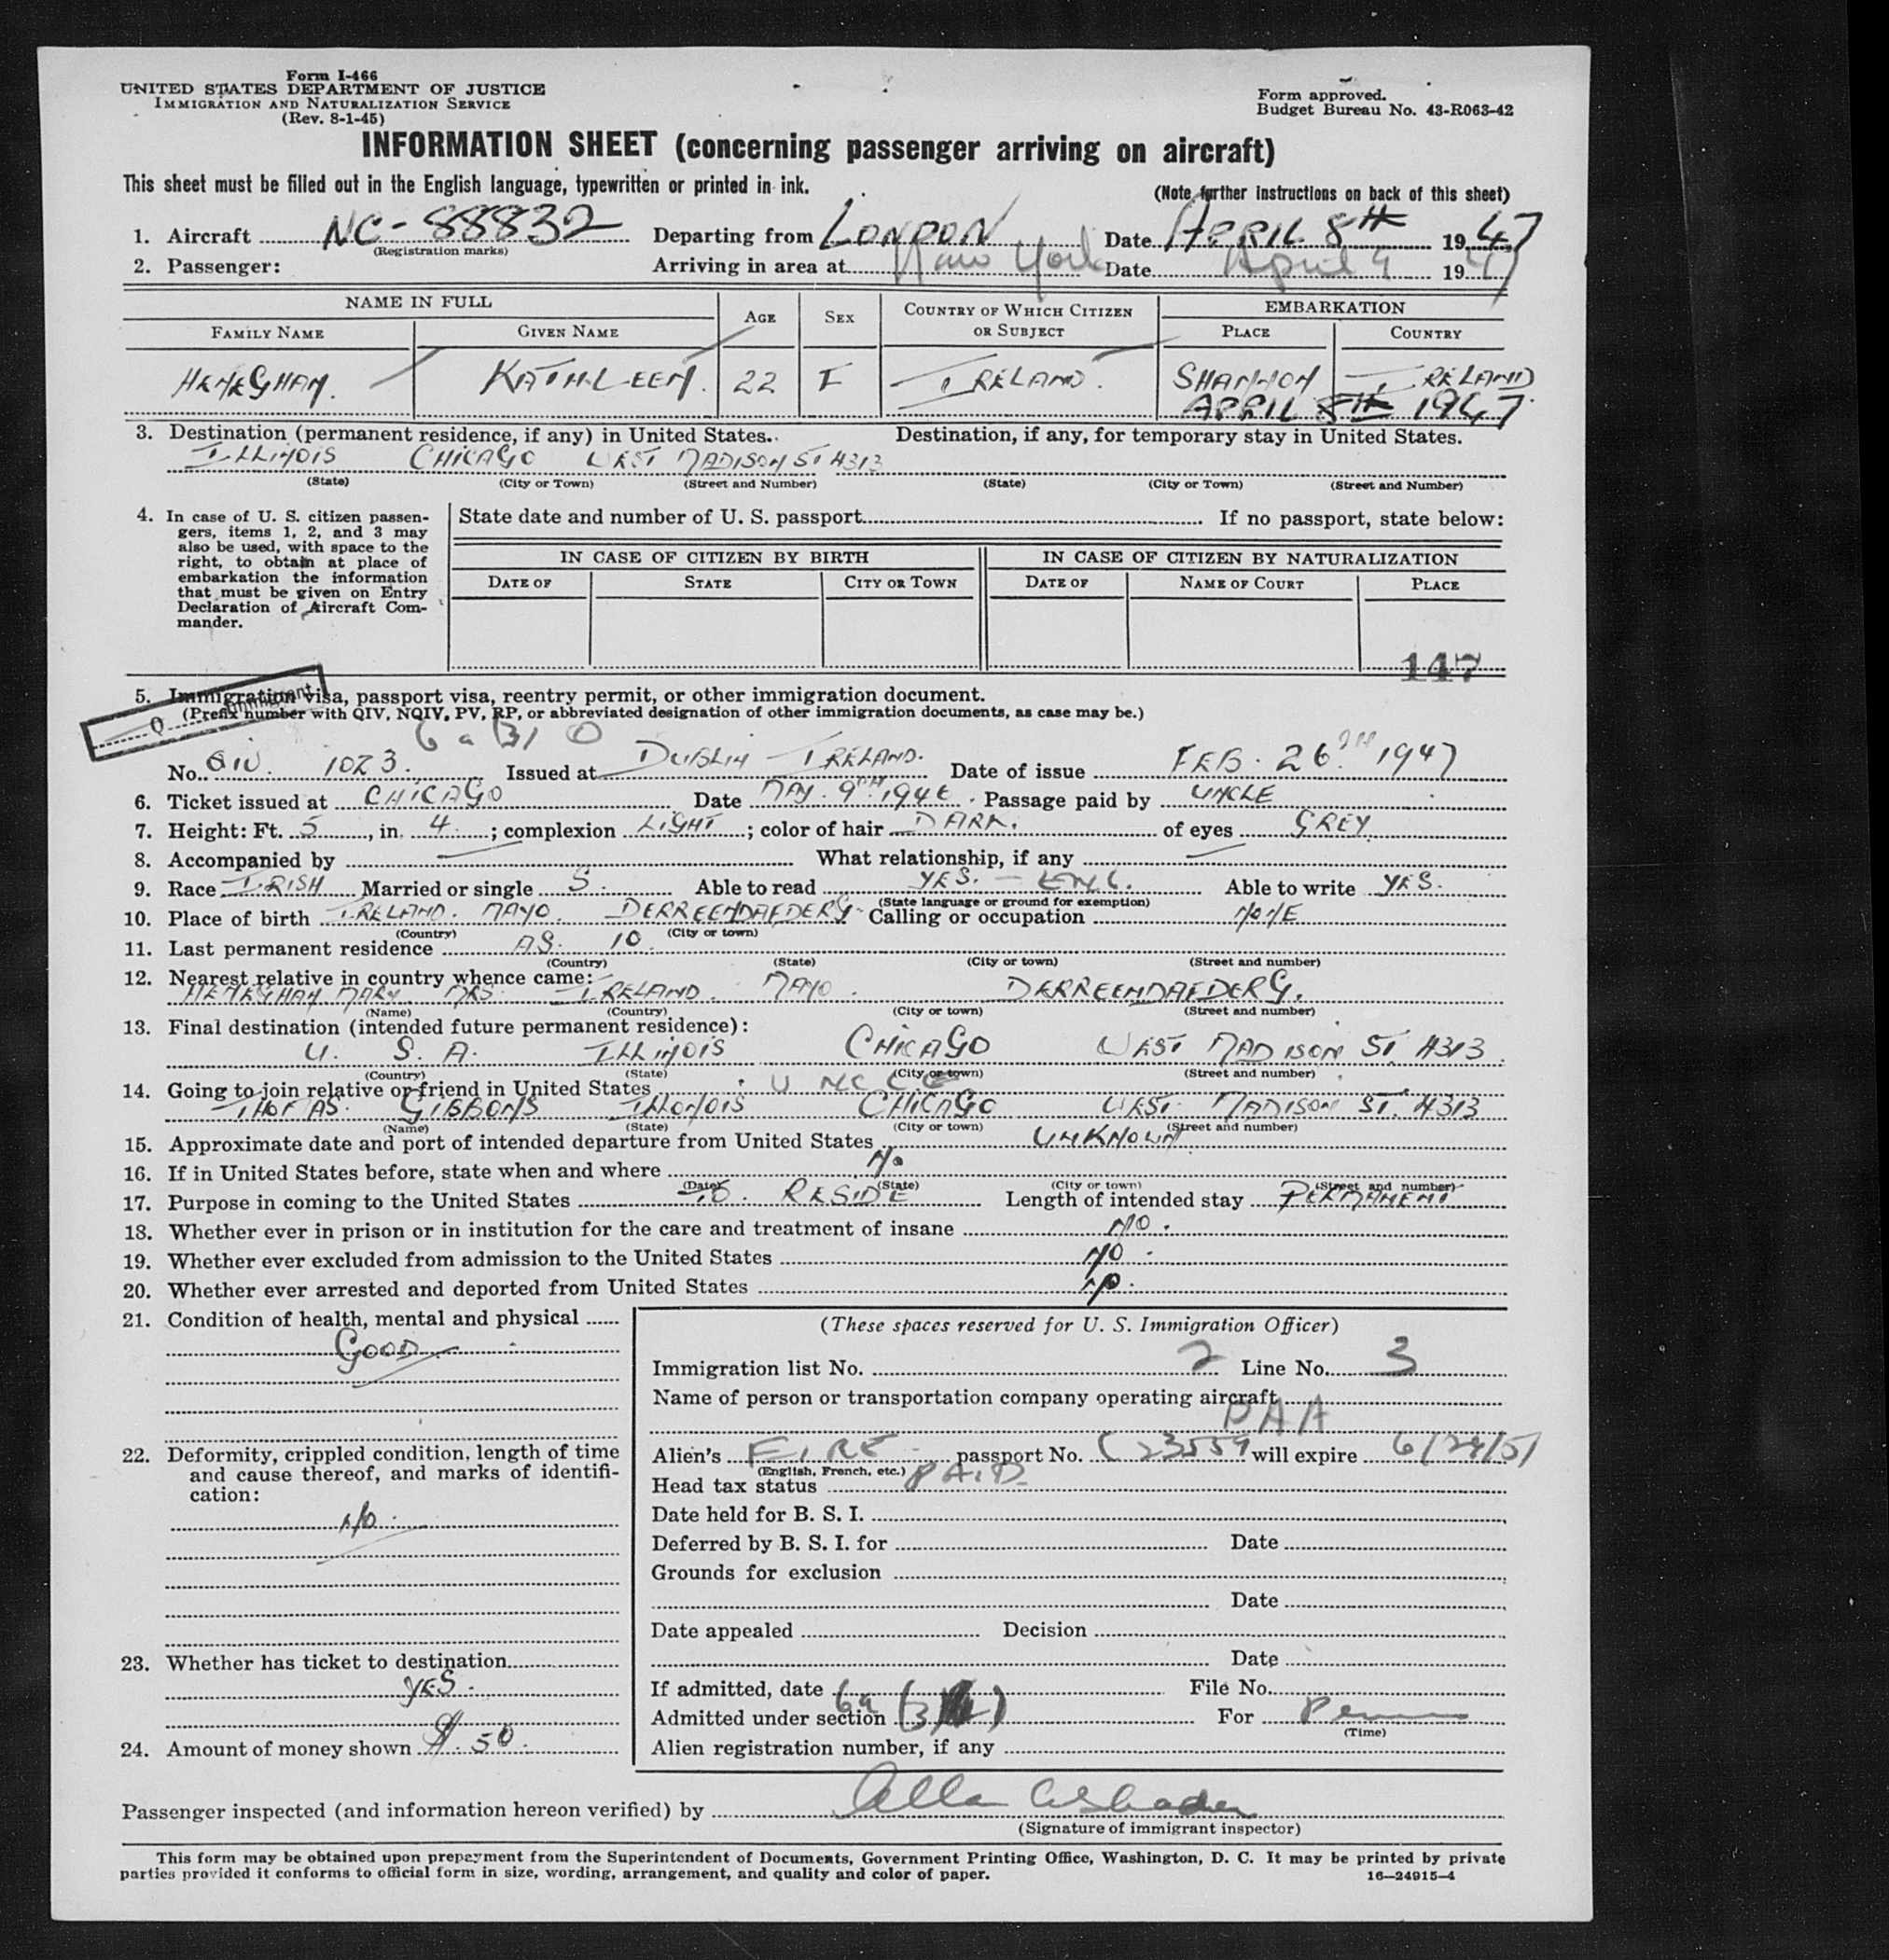 Form I-466
UNITED STATES DEPARTMENT OF JUSTICE
IMMIGRATION AND NATURALIZATION SERVICE
(Rev. 8-1-45)
Form approved.
Budget Bureau No. 43-R063-42
INFORMATION SHEET (concerning passenger arriving on aircraft)
This sheet must be filled out in the English language, typewritten or printed in ink.
(Note further instructions on back of this sheet)
1. Aircraft NC-88832 Departing from LONDON Date APRIL 8TH 1947
(Registration marks)
2. Passenger: Arriving in area at New York Date April 9 1947
NAME IN FULL AGE SEX COUNTRY OF WHICH CITIZEN OR SUBJECT EMBARKATION
FAMILY NAME GIVEN NAME PLACE COUNTRY
HENEGHAN. KATHLEEN. 22 F IRELAND. SHANNON IRELAND
APRIL 8TH 1947
3. Destination (permanent residence, if any) in United States. Destination, if any, for temporary stay in United States.
ILLINOIS CHICAGO WEST MADISON ST 4313
(State) (City or Town) (Street and Number) (State) (City or Town) (Street and Number)
4. In case of U. S. citizen passengers, items 1, 2, and 3 may also be used, with space to the right, to obtain at place of embarkation the information that must be given on Entry Declaration of Aircraft Commander.
State date and number of U. S. passport If no passport, state below:
IN CASE OF CITIZEN BY BIRTH IN CASE OF CITIZEN BY NATURALIZATION
DATE OF STATE CITY OR TOWN DATE OF NAME OF COURT PLACE
147
5. Immigration visa, passport visa, reentry permit, or other immigration document.
(Prefix number with QIV, NQIV, PV, RP, or abbreviated designation of other immigration documents, as case may be.)
Q
6 a (3) O
No. QIV. 1023. Issued at DUBLIN IRELAND. Date of issue FEB. 26TH 1947
6. Ticket issued at CHICAGO Date MAY. 9TH 1946. Passage paid by UNCLE
7. Height: Ft. 5, in. 4; complexion LIGHT; color of hair DARK. of eyes GREY
8. Accompanied by — What relationship, if any —
9. Race IRISH Married or single S. Able to read YES. - ENG. Able to write YES.
(State language or ground for exemption)
10. Place of birth IRELAND. MAYO. DERREENDAFDERG Calling or occupation NONE
(Country) (City or town)
11. Last permanent residence AS. 10.
(Country) (State) (City or town) (Street and number)
12. Nearest relative in country whence came:
HENEGHAN MARY MRS IRELAND. MAYO. DERREENDAFDERG.
(Name) (Country) (City or town) (Street and number)
13. Final destination (intended future permanent residence):
U. S. A. ILLINOIS CHICAGO WEST MADISON ST. 4313
(Country) (State) (City or town) (Street and number)
14. Going to join relative or friend in United States UNCLE
THOMAS. GIBBONS ILLONOIS CHICAGO WEST MADISON ST. 4313
(Name) (State) (City or town) (Street and number)
15. Approximate date and port of intended departure from United States UNKNOWN
16. If in United States before, state when and where No
(Date) (State) (City or town) (Street and number)
17. Purpose in coming to the United States TO. RESIDE Length of intended stay PERMANENT
18. Whether ever in prison or in institution for the care and treatment of insane NO.
19. Whether ever excluded from admission to the United States NO.
20. Whether ever arrested and deported from United States NO.
21. Condition of health, mental and physical
GOOD
22. Deformity, crippled condition, length of time and cause thereof, and marks of identification:
NO.
23. Whether has ticket to destination
YES.
24. Amount of money shown $. 50.
(These spaces reserved for U. S. Immigration Officer)
Immigration list No. 2 Line No. 3
Name of person or transportation company operating aircraft
PAA
Alien's EIRE passport No. C 23559 will expire 6/24/51
(English, French, etc.)
Head tax status PAID
Date held for B. S. I.
Deferred by B. S. I. for Date
Grounds for exclusion
Date
Date appealed Decision
Date
If admitted, date File No.
Admitted under section 6a (3) For Perm
(Time)
Alien registration number, if any
Passenger inspected (and information hereon verified) by
(Signature of immigrant inspector)
This form may be obtained upon prepayment from the Superintendent of Documents, Government Printing Office, Washington, D. C. It may be printed by private
parties provided it conforms to official form in size, wording, arrangement, and quality and color of paper. 16—24915-4